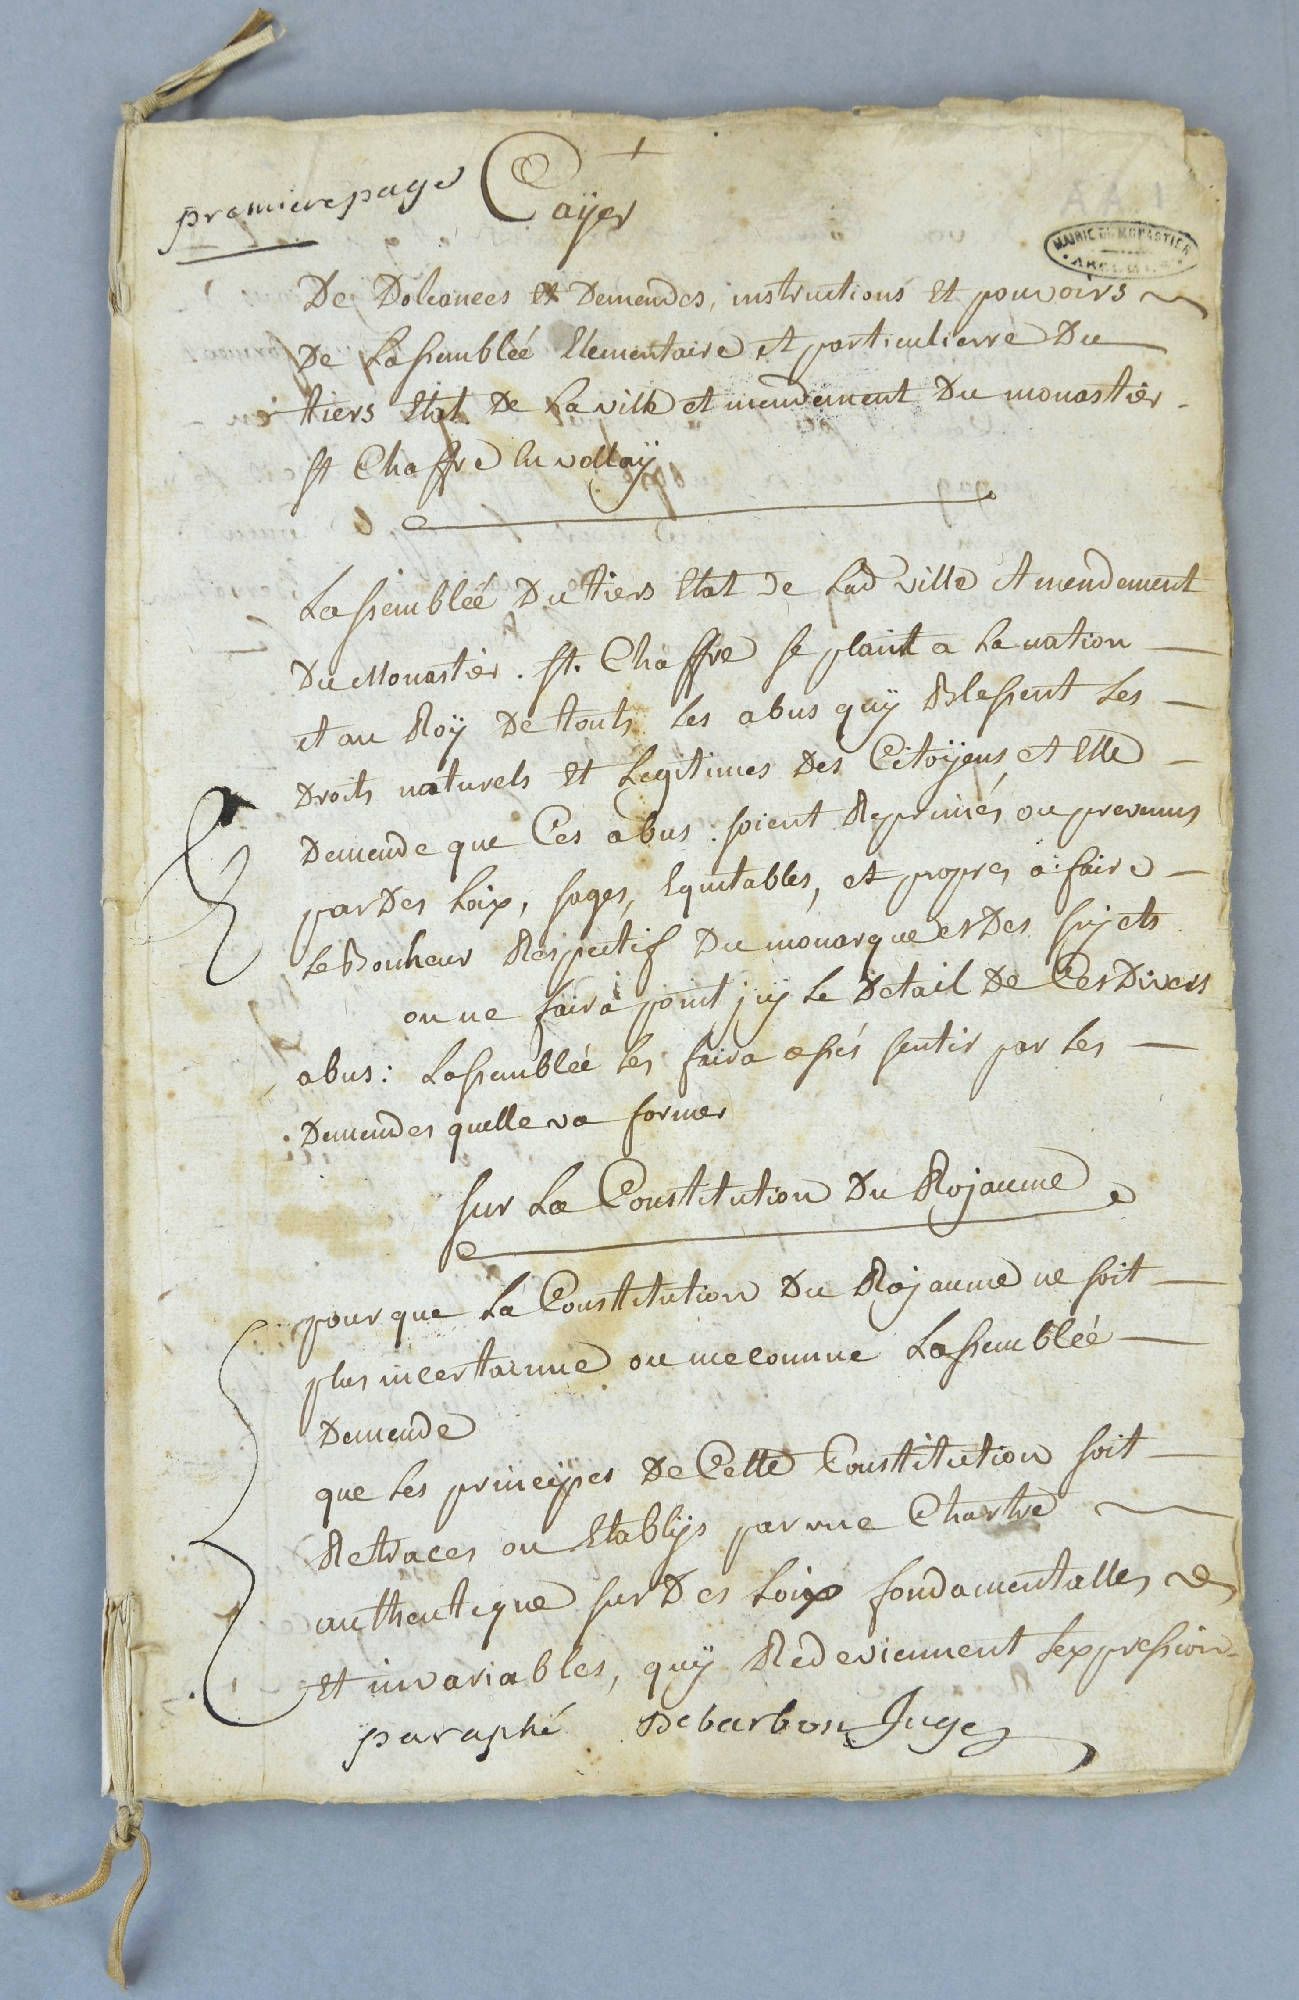 premiere page
Cayer
AA 1
MAIRIE DU MONASTIER
De Doleances et Demendes, instructions et pouvoirs
De Lassembleé Elementaire et particulierre Du
tiers Etat De La ville et mendement Du monastier
st Chaffre En vellaÿ
Lassembleé Du tiers Etat de Lad ville et mendement
Du Monastier. st. Chaffre se plaint a La nation
et au Roÿ De touts Les abus quÿ Blessent Les
Droits naturels et Legitimes Des Citoÿens, et Elle
Demende que Ces abus soient Reprimés ou prevenus
par Des Loix, sages, Equitables, et propres a faire
Le Bonheur Respectif Du monarque et Des sujets
on ne faira point jcÿ Le Detail De Ces Divers
abus: Lassembleé Les faira assés sentir par Les
Demendes quelle va former
sur La Constitution Du Rojaume
pour que La Constitution Du Rojaume ne soit
plus incertainne ou meconnue Lassembleé
Demende
que Les principes De Cette Constitution soit
Retraces ou Etablijs par une Chartre
authentique sur Des Loix fondamentalles
et invariables, quÿ Redeviennent Lexpression
paraphé Debarbon Juge